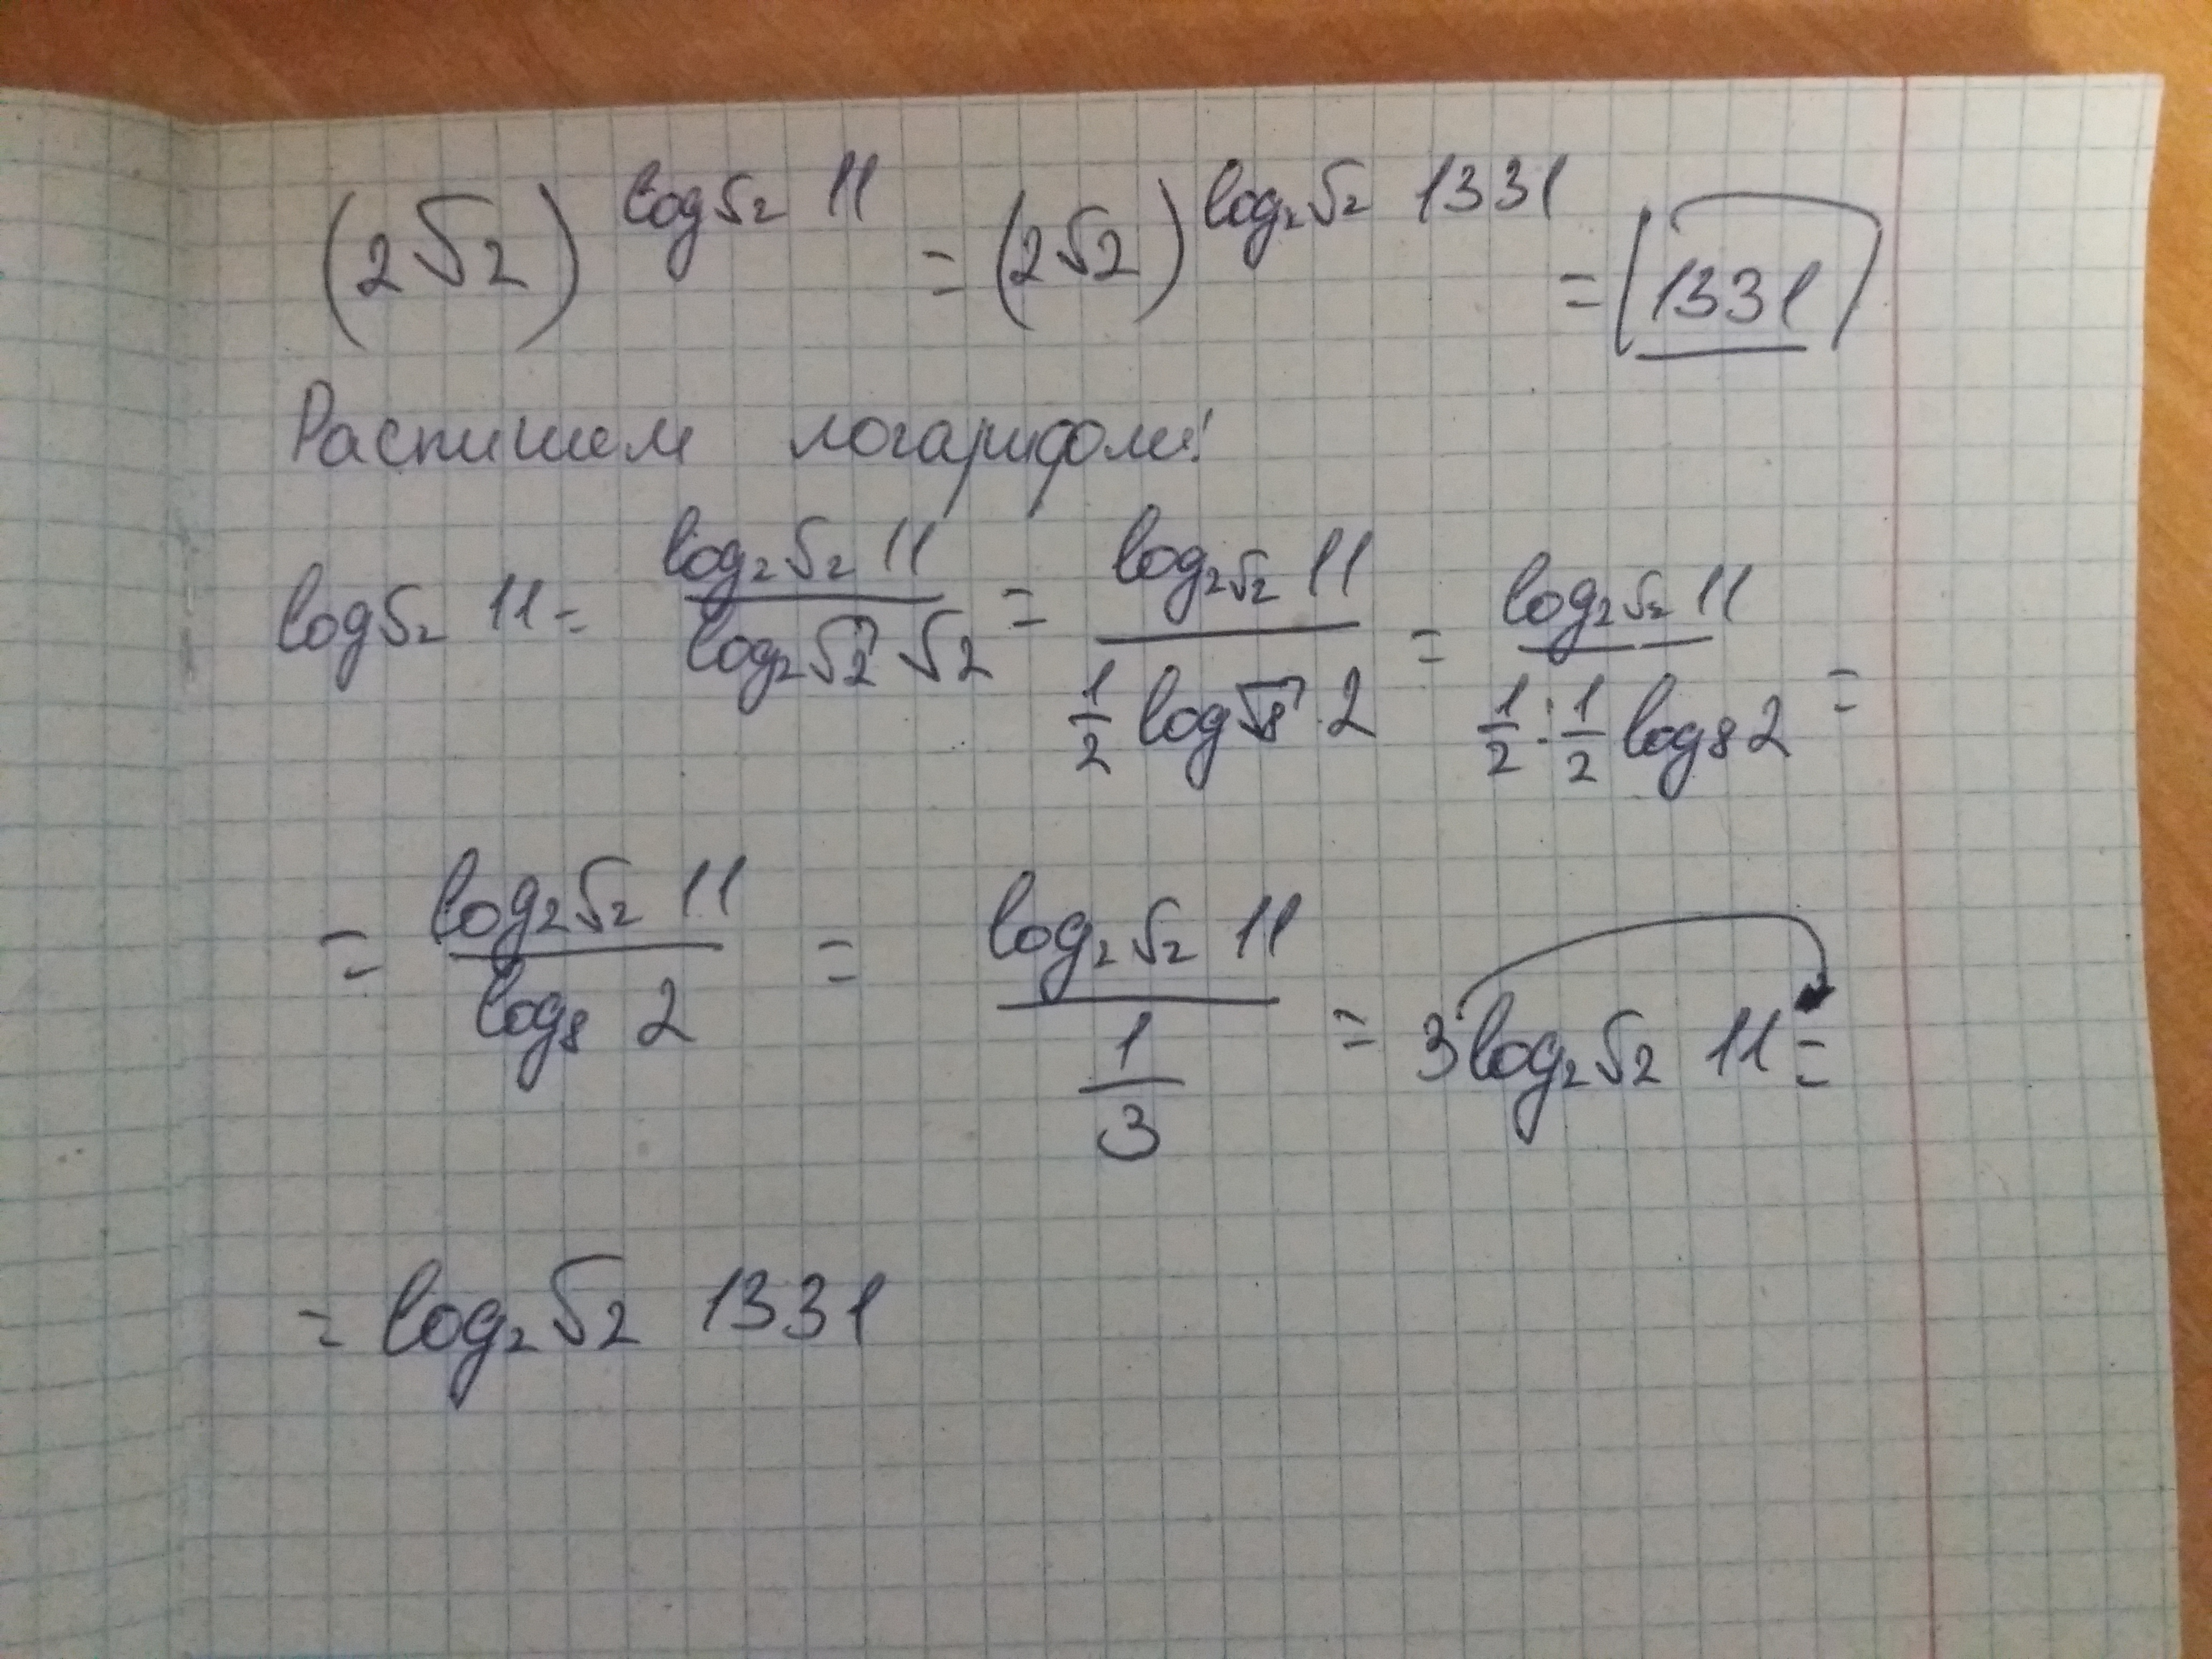 (2√2)^(log_√2 11) = (2√2)^(log_2√2 1331) = 1331
Распишем логарифом:
log_√2 11 = (log_2√2 11)/(log_2√2 √2) = (log_2√2 11)/(1/2 log_√8 2) = (log_2√2 11)/(1/2 : 1/2 log_8 2) =
= (log_2√2 11)/(log_8 2) = (log_2√2 11)/(1/3) = 3log_2√2 11 =
= log_2√2 1331